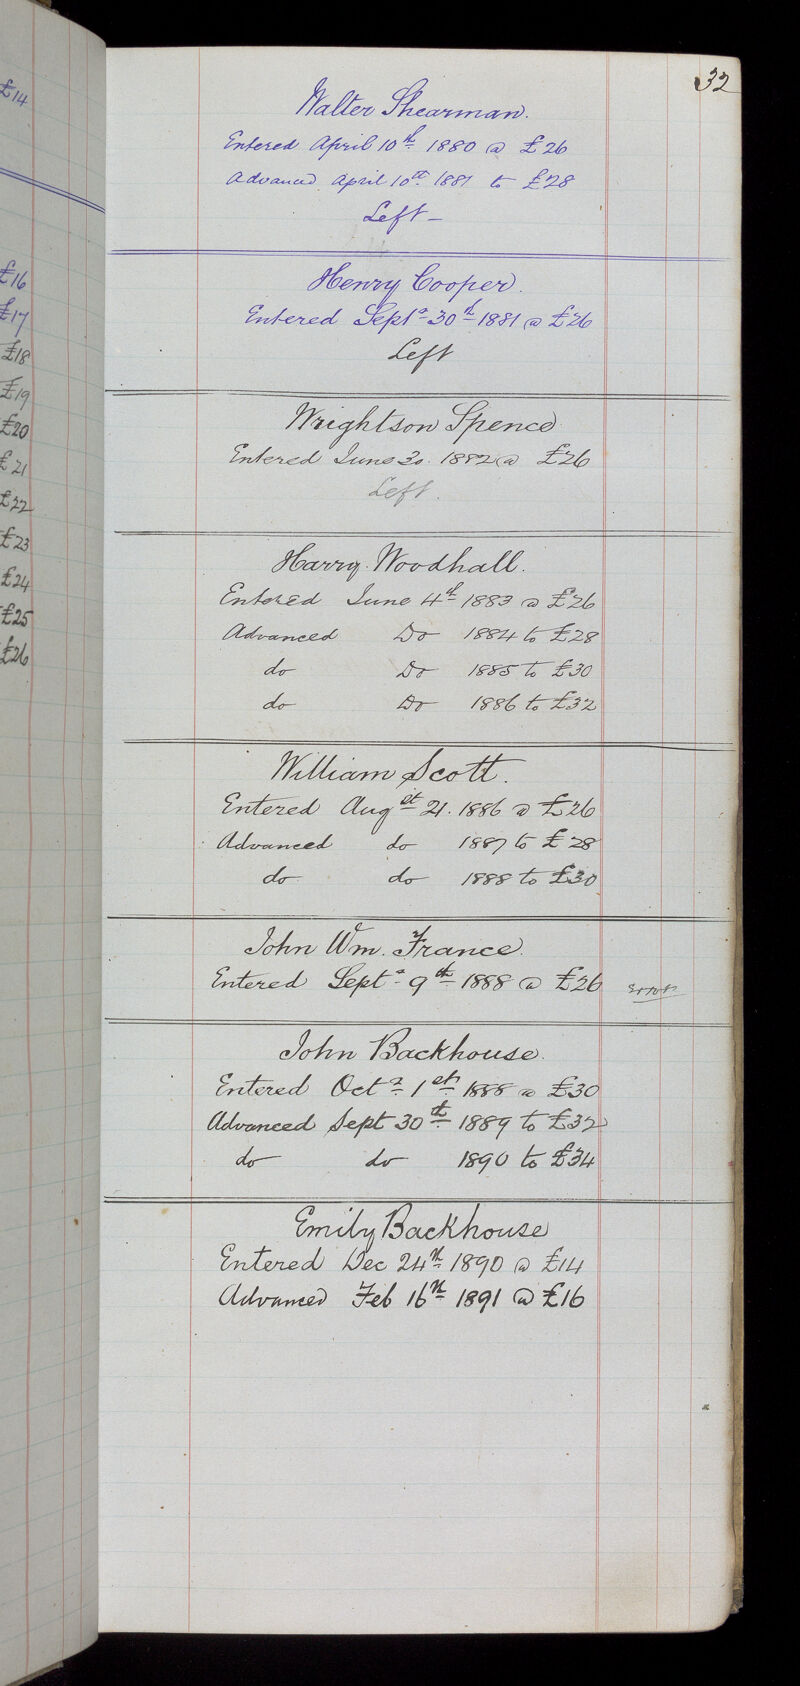 £14
£16
£17
£18
£19
£20
£21
£22
£23
£24
£25
£26
32
Walter Shearman.
Entered April 10th 1880 @ £26
Advanced April 10th 1881 to £28
Left —
Henry Cooper.
Entered Septr 30th 1881 @ £26
Left
Wrightson Spence
Entered June 30. 1882 @ £26
Left.
Harry Woodhall.
Entered June 4th 1883 @ £26
Advanced Do 1884 to £28
do Do 1885 to £30
do Do 1886 to £32
William Scott.
Entered Augst 21. 1886 @ £26
Advanced do 1887 to £28
do do 1888 to £30
John Wm. France.
Entered Septr 9th 1888 @ £26 error
John Backhouse.
Entered Octr 1st 1888 @ £30
Advanced Sept 30th 1889 to £32
do do 1890 to £34
Emily Backhouse
Entered Dec 24th 1890 @ £14
Advanced Feb 16th 1891 @ £16